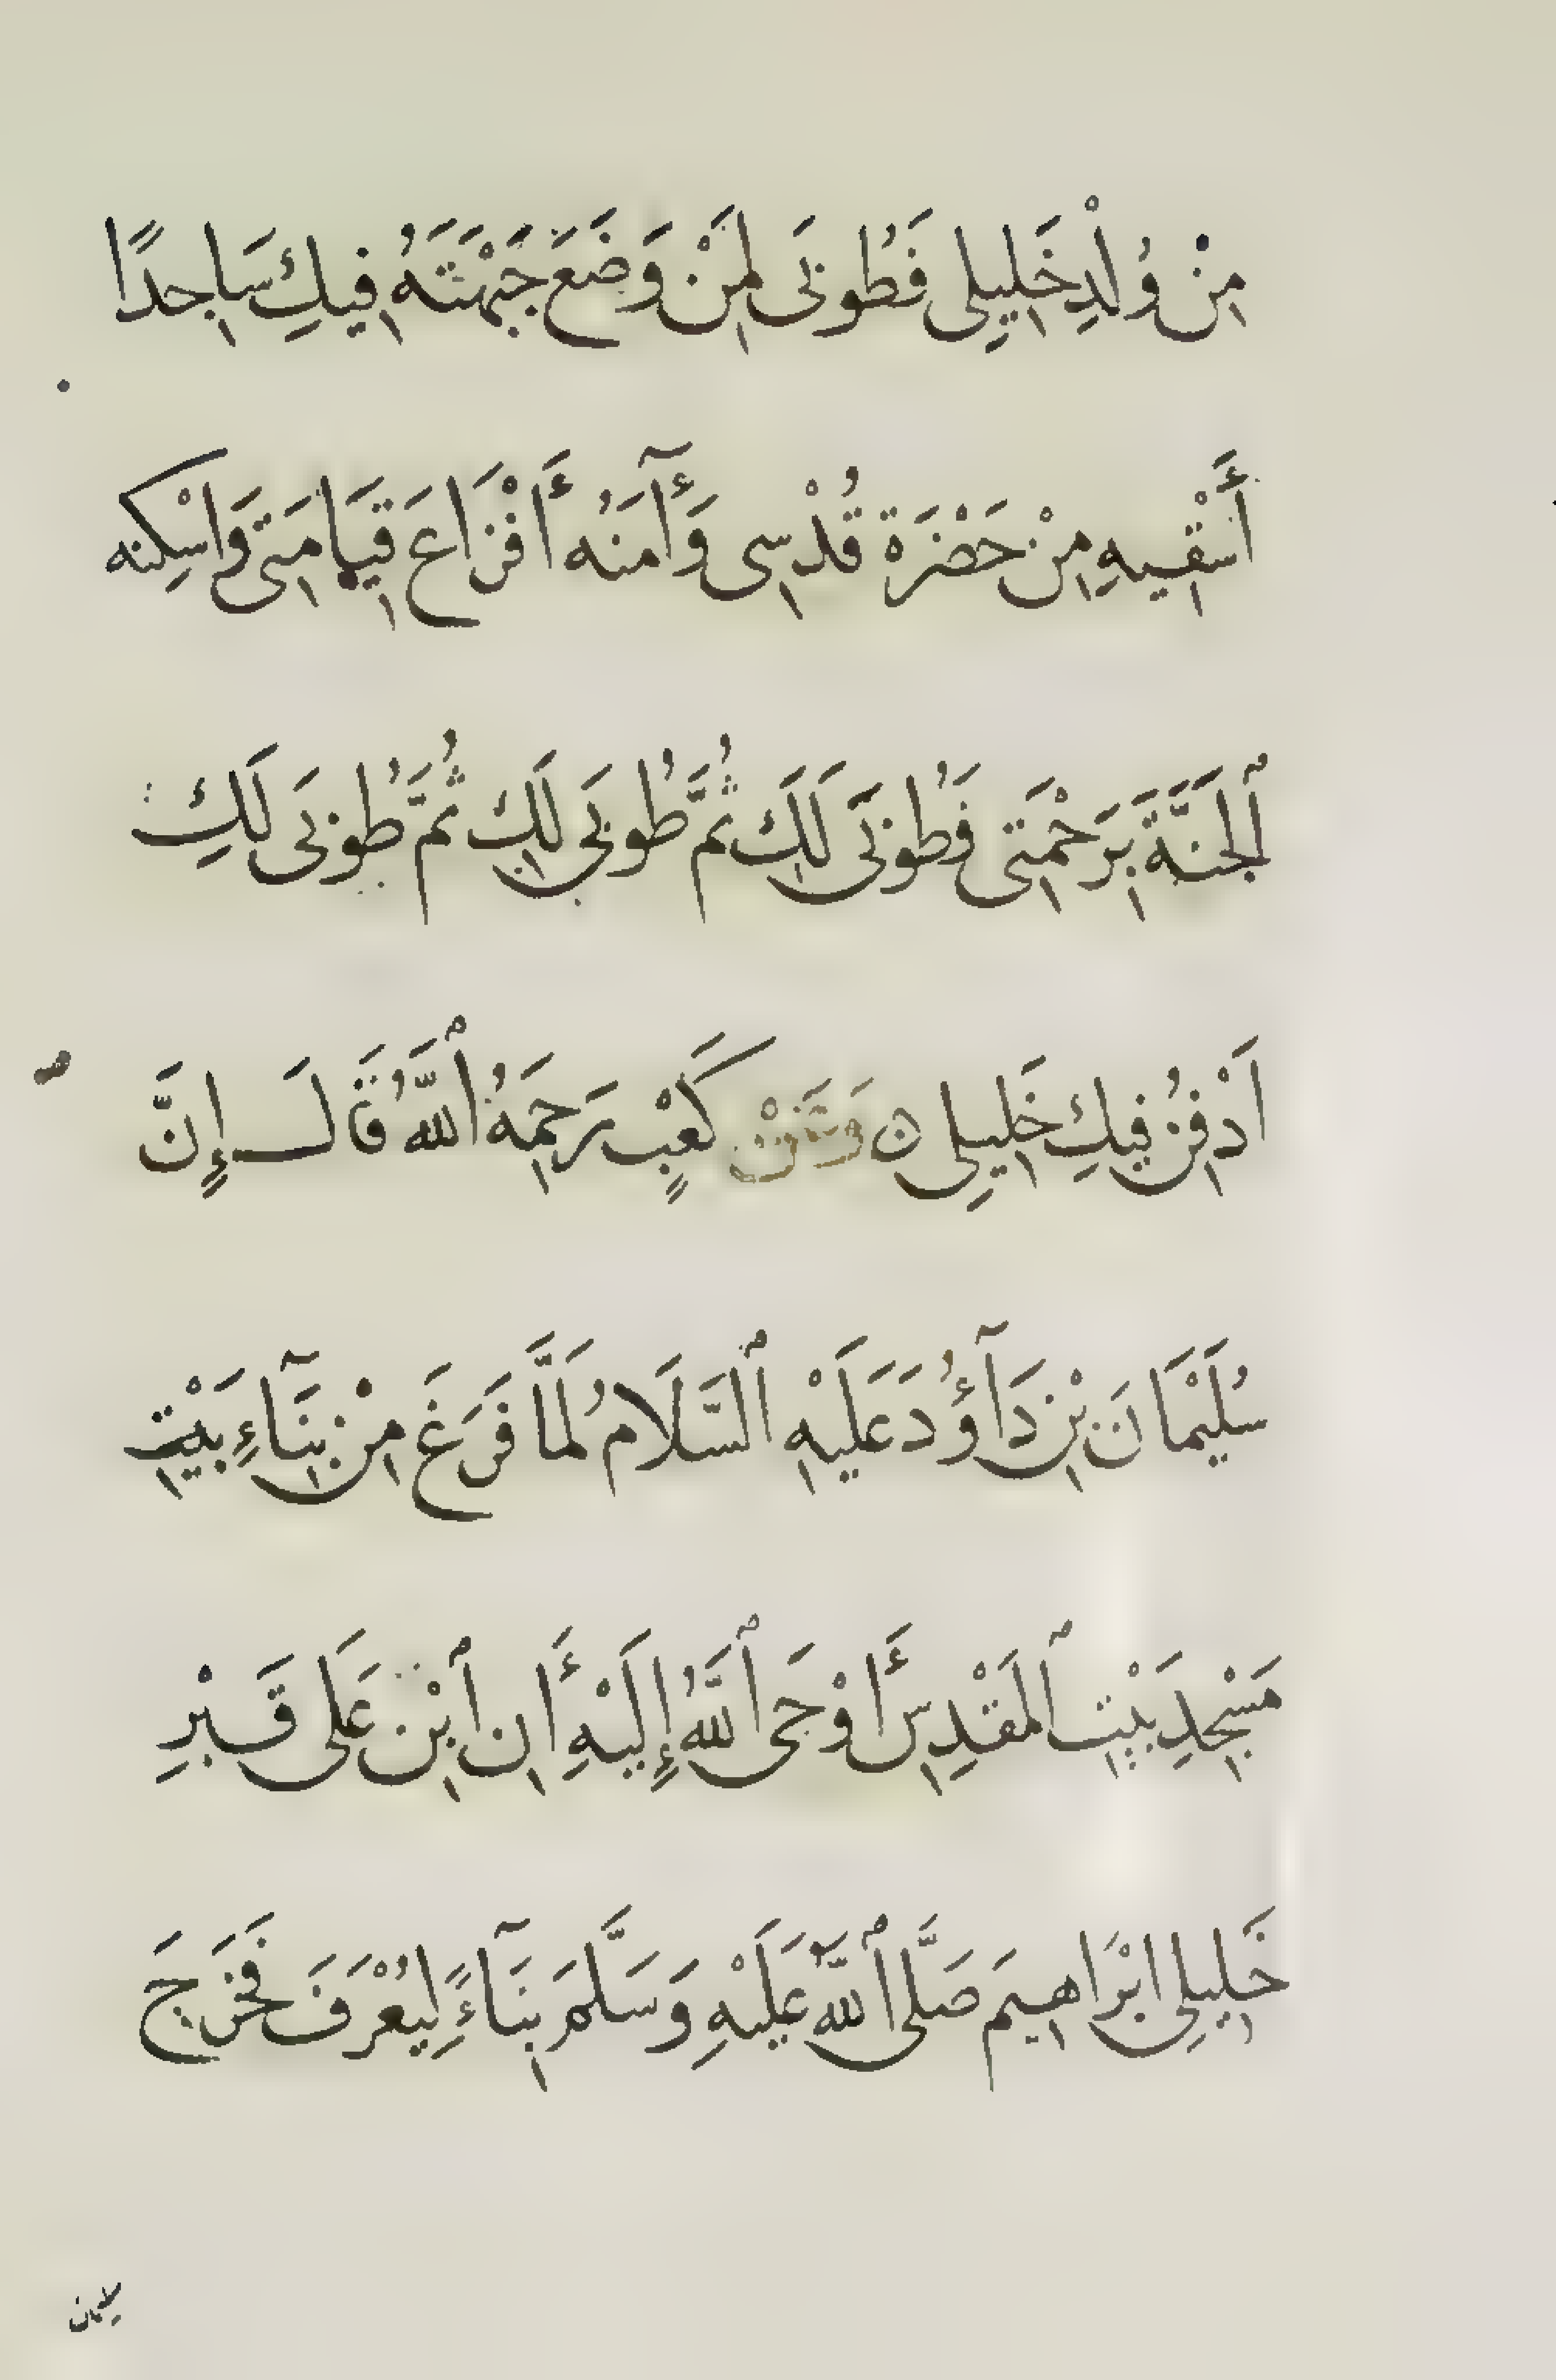 مِنْ وُلْدِ خَلِيلِى فَطُوبَى لِمَنْ وَضَعَ جَبْهَتَهُ فِيكِ سَاجِدًا
أَسْقِيهِ مِنْ حَضْرَةِ قُدْسِى وَأَۤمَنُه أَفْزَاعَ قِيَامَتِى وَاسْكِنه
ٱلجَنَّةَ بِرَحْمَتِى فَطُوبَى لَكِ ثُمَّ طُوبَى لَكِ ثُمَّ طُوبَى لَكِ
اَدْفِنُ فِيكِ خَلِيلِى ن وَعَنْ كَعْبٍ رَحِمَهُ ٱللَّهُ قَالَ إِنَّ
سُلَيْمَانَ بْنِ دَآوُدَ عَلَيْهِ ٱلسَّلَامُ لَمَّا فَرَغَ مِنْ بِنَآءِ بَيْتِ
مَسْجِدِ بَيْتِ ٱلمَقْدِسِ أَوْحَى ٱللَّهُ إِلَيْهِ أَن ٱبْنِ عَلَى قَبْرِ
خَلِيلِى ابْرَاهِيمَ صَلَّى ٱللَّهُ عَلَيْهِ وَسَلَّمَ بِنَآءً لِيُعْرَفَ فَخَرَجَ